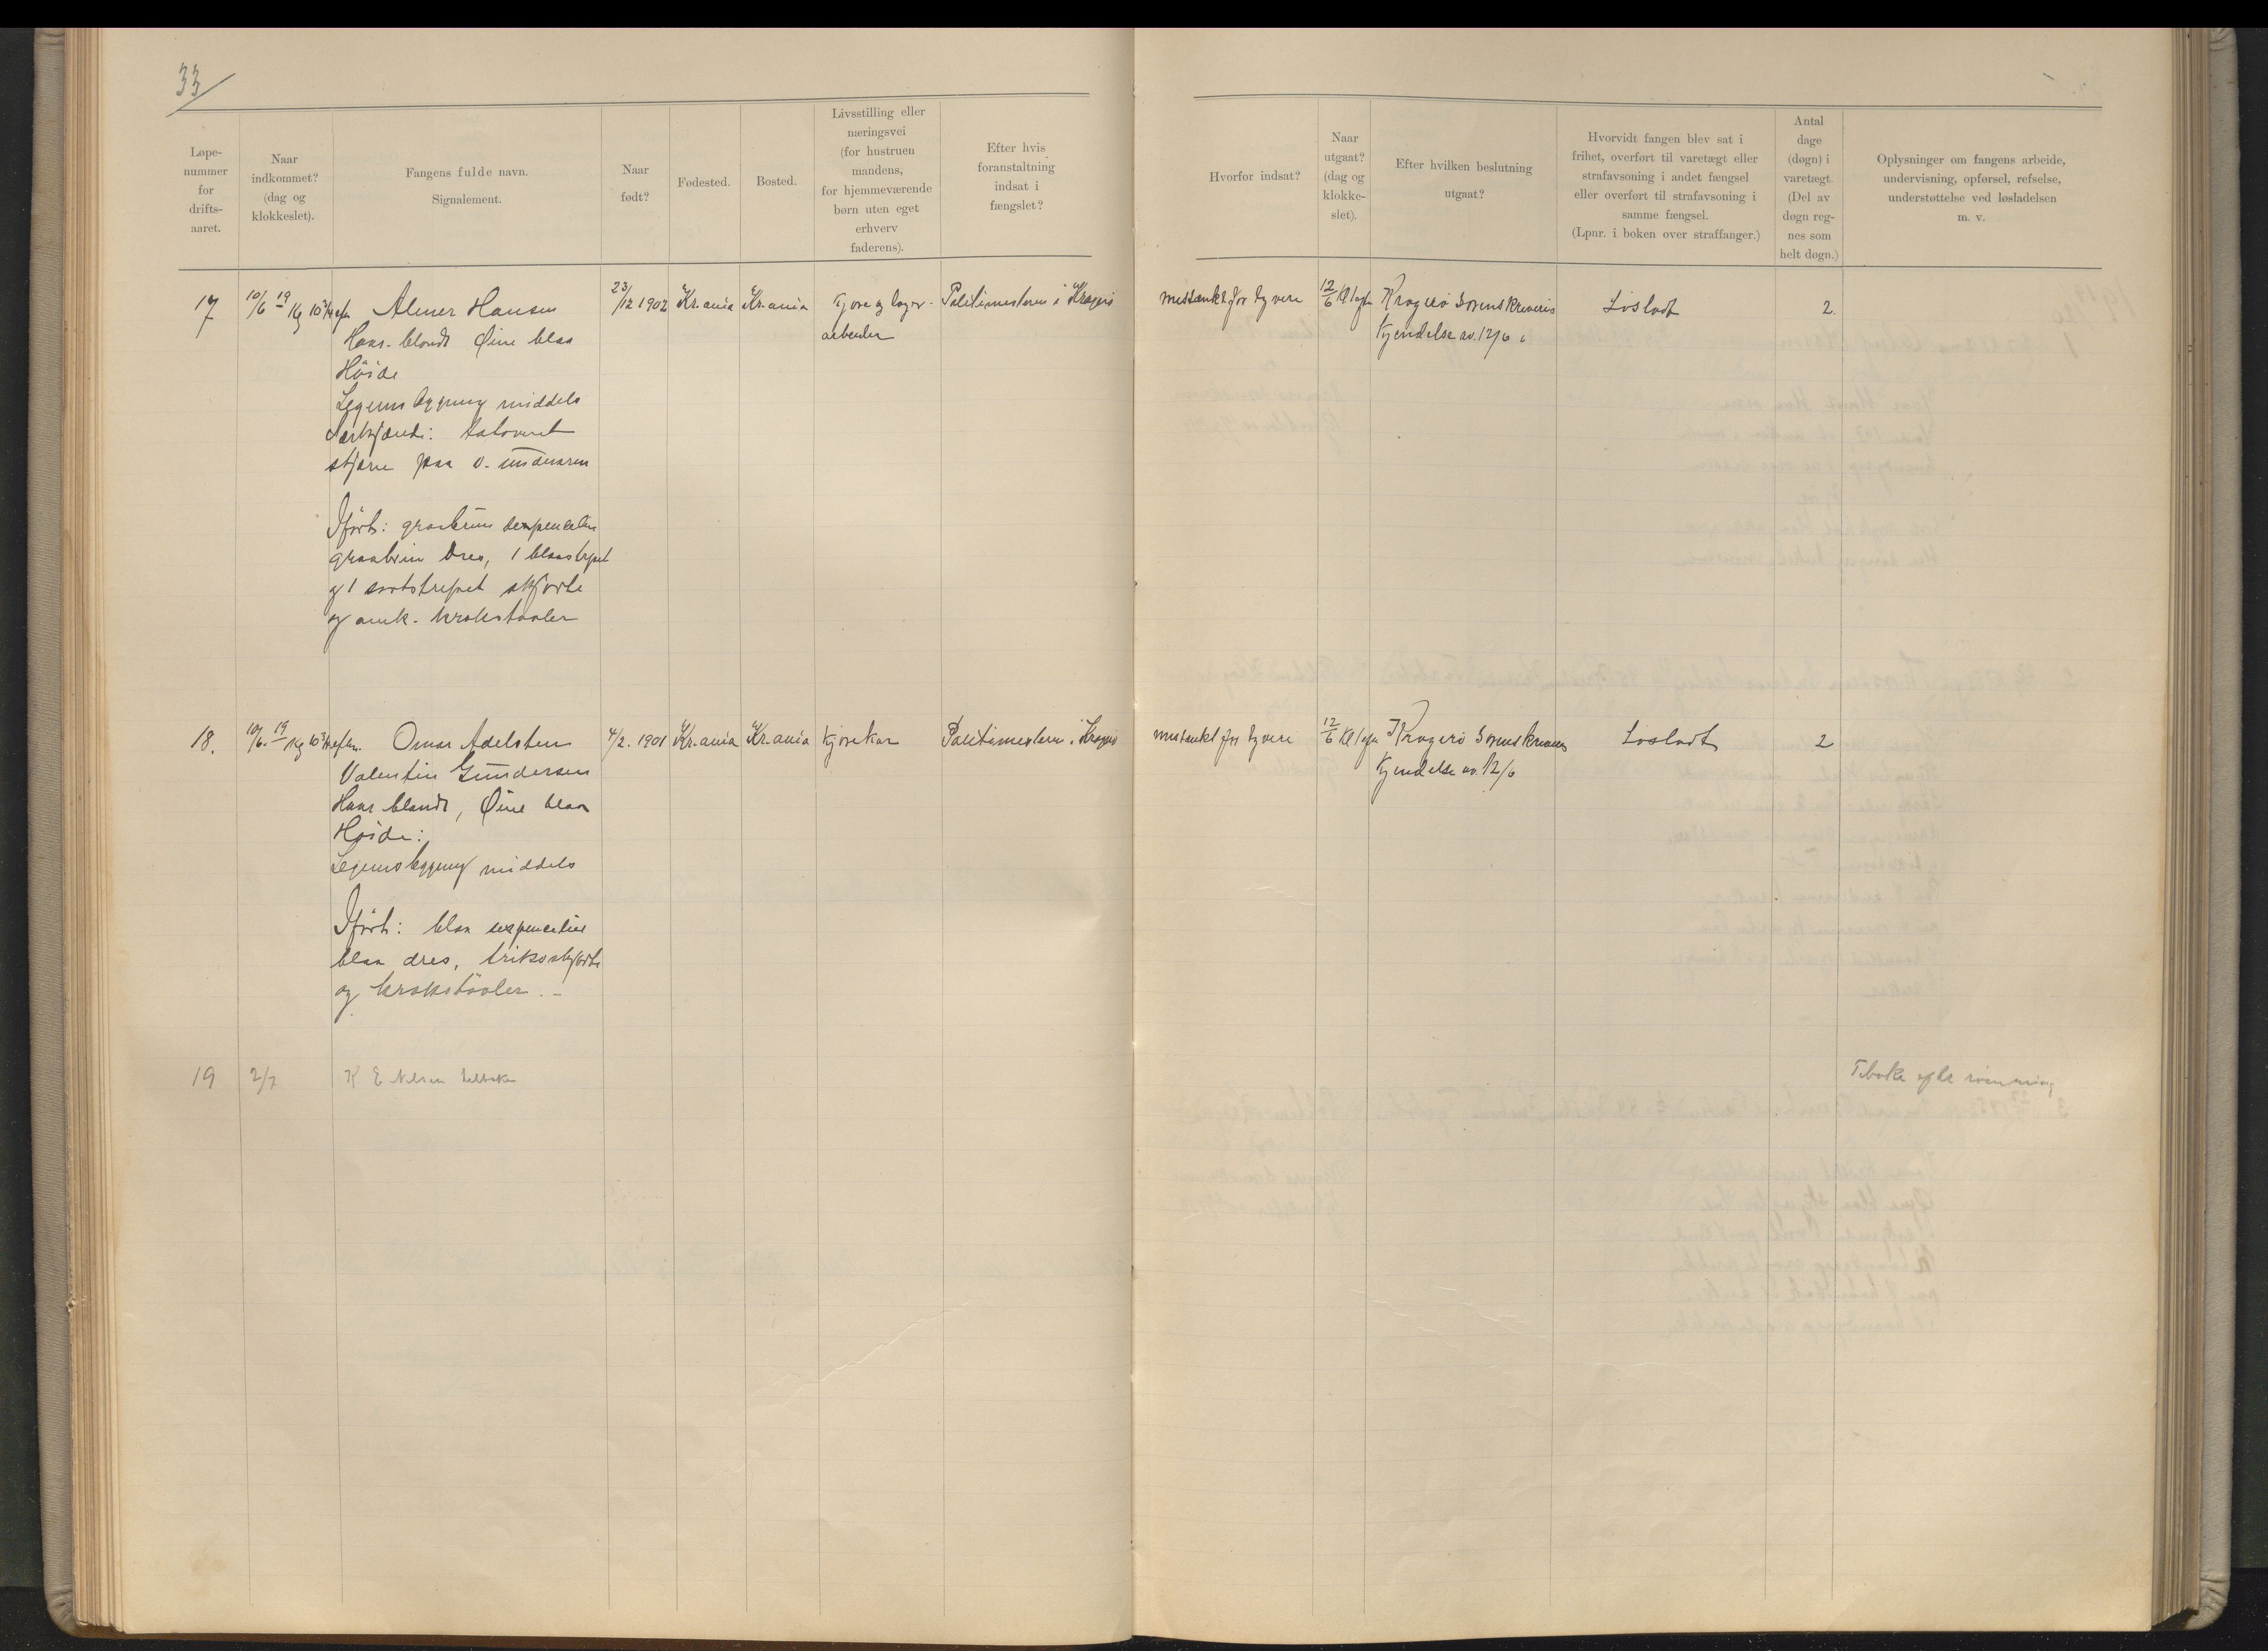 33
Løpe-
nummer
for
drifts-
aaret.
Naar
indkommet?
(dag og
klokkeslet).
Fangens fulde navn.
Signalement.
Naar
født?
Fødested.
Bosted.
Livsstilling eller
næringsvei
(for hustruen
mandens,
for hjemmeværende
børn uten eget
erhverv
faderens).
Efter hvis
foranstaltning
indsat i
fængslet?
Hvorfor indsat?
Naar
utgaat?
(dag og
klokke-
slet).
Efter hvilken beslutning
utgaat?
Hvorvidt fangen blev sat i
frihet, overført til varetægt eller
strafavsoning i andet fængsel
eller overført til strafavsoning i
samme fængsel.
(Lpnr. i boken over straffanger.)
Antal
dage
(døgn) i
varetægt.
(Del av
døgn reg-
nes som
helt døgn.)
Oplysninger om fangens arbeide,
undervisning, opførsel, refselse,
understøttelse ved løsladelsen
m. v.
17
10/6 19 Kl 10 3/4 efm
Almer Hansen
Haar blondt Øine blaa
Høide
Legemsbygning middels
Særkjende: tatoveret
stjerne paa v. underarm
Iført: graabrun sexpencelue
graabrun dres, 1 blaastripet
og 1 sortstripet skjorte
og amk. krokstøvler
23/12 1902
Kr.ania
Kr.ania
Kjøre og lager-
arbeider
Politimesteren i Kragerø
mistænkt for tyveri
12/6 Kl 1 efm
Kragerø Sorenskriveris
Kjendelse av 12/6
Løsladt
2.
18.
10/6. 19 Kl 10 3/4 efm.
Omar Adelsten
Valentin Gundersen
Haar blondt, Øine blaa
Høide:
Legemsbygning middels
Iført: blaa sexpencelue
blaa dres, trikoskjorte
og krokstøvler. -
4/2. 1901
Kr.ania
Kr.ania
Kjørekar
Politimesteren i Kragerø
mistænkt for tyveri
12/6 Kl 1 efm
Kragerø Sorenskriveris
Kjendelse av 12/6
Løsladt
2
19
2/7
K E Nilsen
Tilbake efter rømning